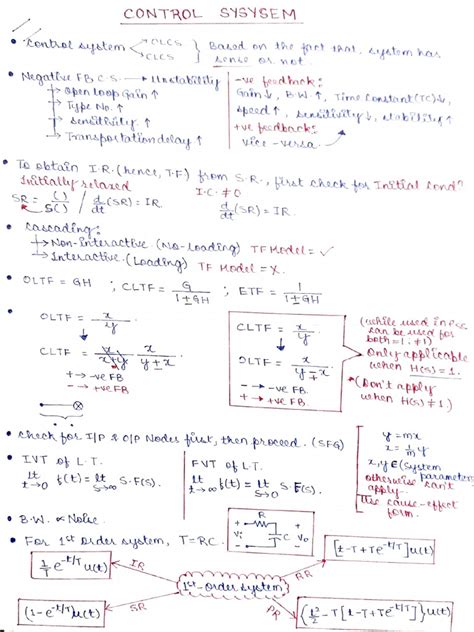 CONTROL SYSYSEM
• Control system → OLCS → CLCS } Based on the fact that, system has sense or not.
• Negative F.B.C.S. → Unstability
→ Open loop Gain ↑
→ Type No. ↑
→ Sensitivity ↑
→ Transportation delay ↑
-ve feedback:
Gain ↓, B.W. ↑, Time Constant (TC) ↓,
speed ↑, sensitivity ↓, stability ↑
+ve feedback:
vice-versa.
• To obtain I.R. (hence, T.F) from S.R., first check for Initial Cond?
Initially relaxed
I.C. ≠ 0
SR = ( )/S( ) / d/dt (SR) = IR.
d/dt (SR) = IR.
• Cascading:
→ Non-interactive. (No-Loading) TF Model = ✓
→ Interactive. (Loading) TF Model = X.
• OLTF = GH ; CLTF = G/1±GH ; ETF = 1/1±GH
• OLTF = x/y
CLTF = x/x+y x/y±x
+ → -ve FB
- → +ve FB
CLTF = x/y
OLTF = x/y∓x
- → -ve FB
+ → +ve FB
(while used in
can be used for
both = 1, ≠ 1)
* Only applicable
when H(s) = 1.
* (Don't apply
when H(s) ≠ 1)
• Check for I/P & O/P Nodes first, then proceed. (SFG)
• IVT of L.T.
lt t→0 f(t) = lt s→∞ S.F(s).
FVT of L.T.
lt t→∞ f(t) = lt s→0 S.F(s).
y = mx
x = 1/m y
x, y ∈ (System parameters
otherwise can't
apply.
Use cause-effect
form.
• B.W. ∝ Noise.
R
+
Vi
-
C
+
Vo
-
• For 1st Order system, T = RC.
1/T e^-t/T u(t)
IR
1st-order system
RR
[t-T+Te^-t/T] u(t)
(1-e^-t/T) u(t)
SR
PR
{t²/2 - T[t-T+Te^-t/T]} u(t)